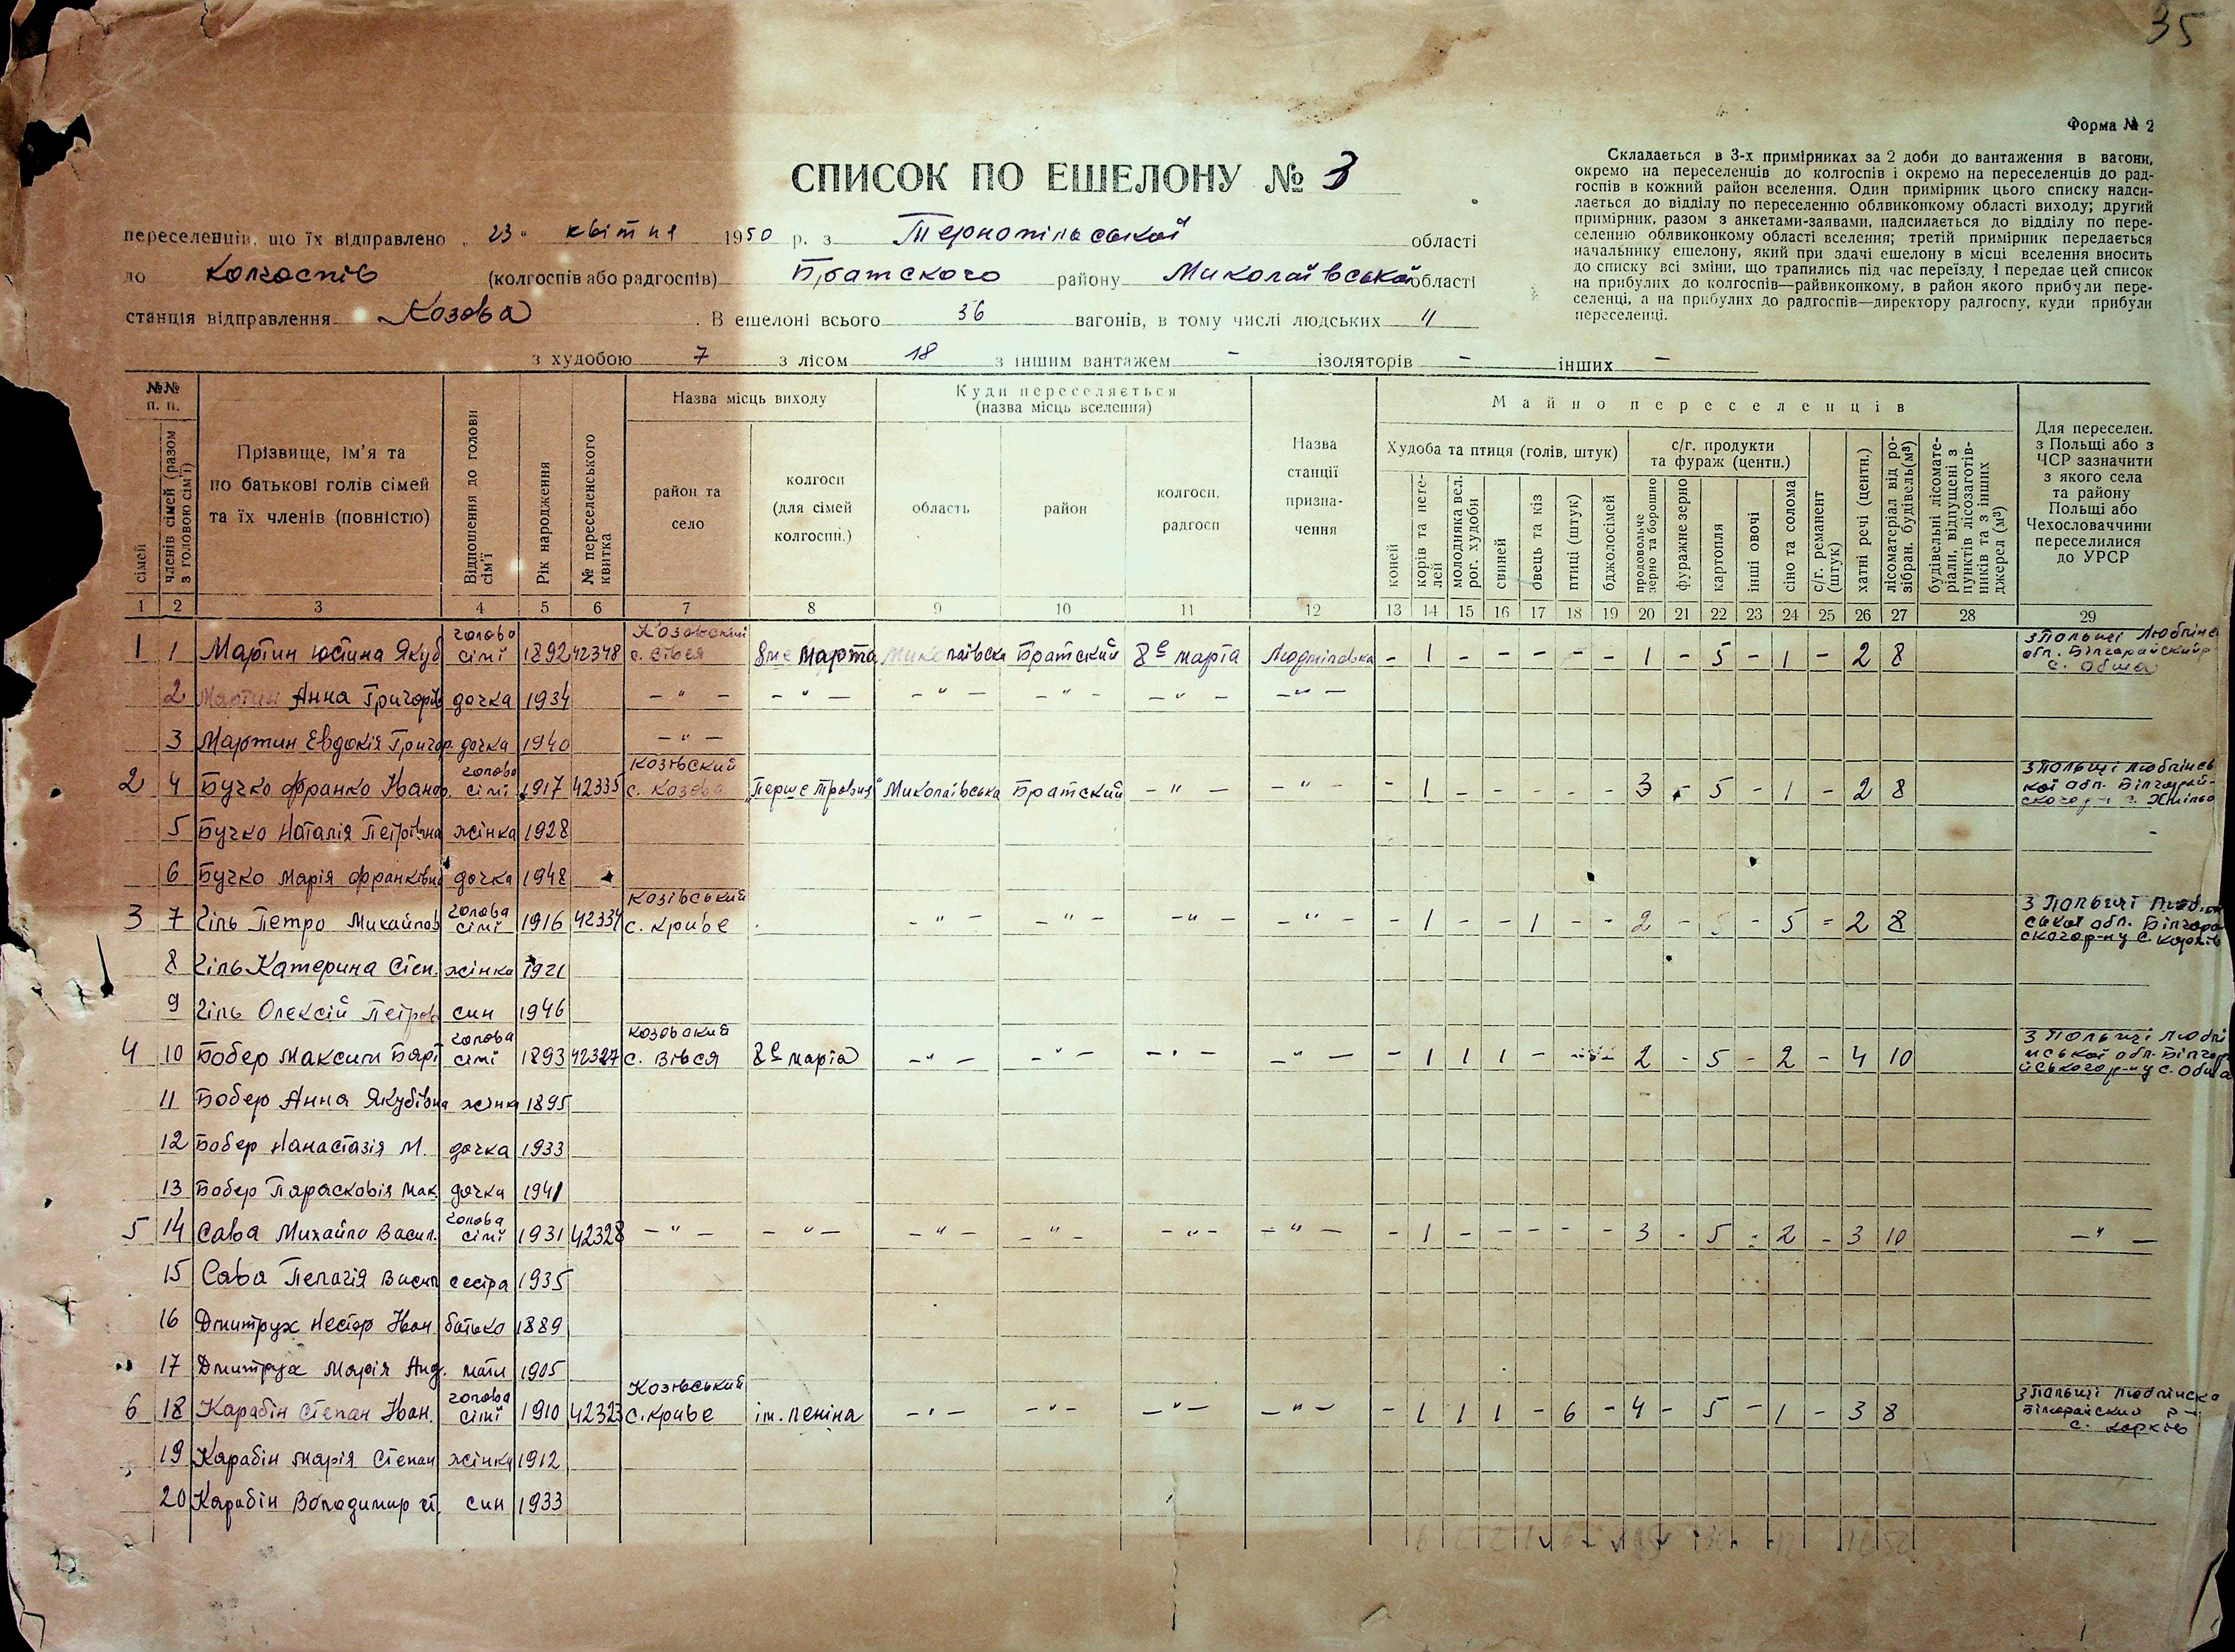 35
Форма № 2
СПИСОК ПО ЕШЕЛОНУ № 3
Складається в 3-х примірниках за 2 доби до вантаження в вагони,
окремо на переселенців до колгоспів і окремо на переселенців до рад-
госпів в кожний район вселення. Один примірник цього списку надси-
лається до відділу по переселенню облвиконкому області виходу; другий
примірник, разом з анкетами-заявами, надсилається до відділу по пере-
селенню облвиконкому області вселення; третій примірник передається
начальнику ешелону, який при здачі ешелону в місці вселення вносить
до списку всі зміни, що трапились під час переїзду, і передає цей список
на прибулих до колгоспів—райвиконкому, в район якого прибули пере-
селенці, а на прибулих до радгоспів—директору радгоспу, куди прибули
переселенці.
переселенців, що їх відправлено „ 23 " квітня 1950 р. з Тернопільської області
до колгоспів (колгоспів або радгоспів) Братского району Миколаївської області
станція відправлення Козова. В ешелоні всього 36 вагонів, в тому числі людських 11
з худобою 7 з лісом 18 з іншим вантажем - ізоляторів - інших -
№№ п. п.
сімей
членів сімей (разом з головою сім'ї)
Прізвище, ім'я та по батькові голів сімей та їх членів (повністю)
Відношення до голови сім'ї
Рік народження
№ переселенського квитка
Назва місць виходу
район та село
колгосп (для сімей колгоспн.)
Куди переселяється (назва місць вселення)
область
район
колгосп, радгосп
Назва станції призна-чення
Майно переселенців
Худоба та птиця (голів, штук)
коней
корів та нете-лей
молодняка вел. рог. худоби
свиней
овець та кіз
птиці (штук)
бджолосімей
с/г. продукти та фураж (центн.)
продовольче зерно та борошно
фуражне зерно
картопля
інші овочі
сіно та солома
с/г. реманент (штук)
хатні речі (центн.)
лісоматеріал від ро-зібран. будівель (м³)
будівельні лісомате-ріали, відпущені з пунктів лісозаготів-ників та з інших джерел (м³)
Для переселен. з Польщі або з ЧСР зазначити з якого села та району Польщі або Чехословаччини переселилися до УРСР
1 2 3 4 5 6 7 8 9 10 11 12 13 14 15 16 17 18 19 20 21 22 23 24 25 26 27 28 29
1 1 Мартин Юстина Якуб голова сімї 1892 42348 Козовский с. Вівся 8ме марта Миколаївска Братский 8е марта Людмілавка - 1 - - - - - 1 - 5 - 1 - 2 8 З Польщі Люблінс обл. Білгарайский р с. Обша
2 Мартин Анна Григорів дочка 1934 - " - - " - - " - - " - - " - - " -
3 Мартин Евдокія Григор. дочка 1940 - " -
2 4 Бучко Франко Іванов. голова сімї 1917 42335 Козівский с. Козова „Перше Травня" Миколаївська Братский - " - - " - - 1 - - - - - 3 - 5 - 1 - 2 8 З Польщі Люблінсь кої обл. Білгарай-ского р-н с. Хмільо
5 Бучко Наталія Петрівна жінка 1928
6 Бучко Марія Франківна дочка 1948
3 7 Гіль Петро Михайлов голова сімї 1916 42334 Козівський с. Криве - " - - " - - " - - " - - 1 - - 1 - - 2 - 5 - 5 - 2 8 З Польщі ської обл. Білгора ского р-ну с.
8 Гіль Катерина Степ. жінка 1921
9 Гіль Олексій Петров син 1946
4 10 Бобер Максим Барт голова сімї 1893 42327 Козовский с. Вівся 8е марта - " - - " - - " - - " - - 1 1 1 - - - 2 - 5 - 2 - 4 10 З Польщі Люблі нської обл. Білгор йського р-ну с. Обша
11 Бобер Анна Якубівна жінка 1895
12 Бобер Нанастазія М. дочка 1933
13 Бобер Парасковія Мак. дочка 1941
5 14 Сава Михайло Васил. голова сімї 1931 42328 - " - - " - - " - - " - - " - - " - - 1 - - - - - 3 - 5 - 2 - 3 10 - " -
15 Сава Пелагія Васил сестра 1935
16 Дмитрух Нестор Іван батько 1889
17 Дмитрух Марія Анд. мати 1905
6 18 Карабін Степан Іван. голова сімї 1910 42323 Козівський с. Криве ім. Леніна - " - - " - - " - - " - - 1 1 1 - 6 - 4 - 5 - 1 - 3 8 З Польщі Люблінска Білгарайский р-н с.
19 Карабін Марія Степан жінка 1912
20 Карабін Володимир ст. син 1933